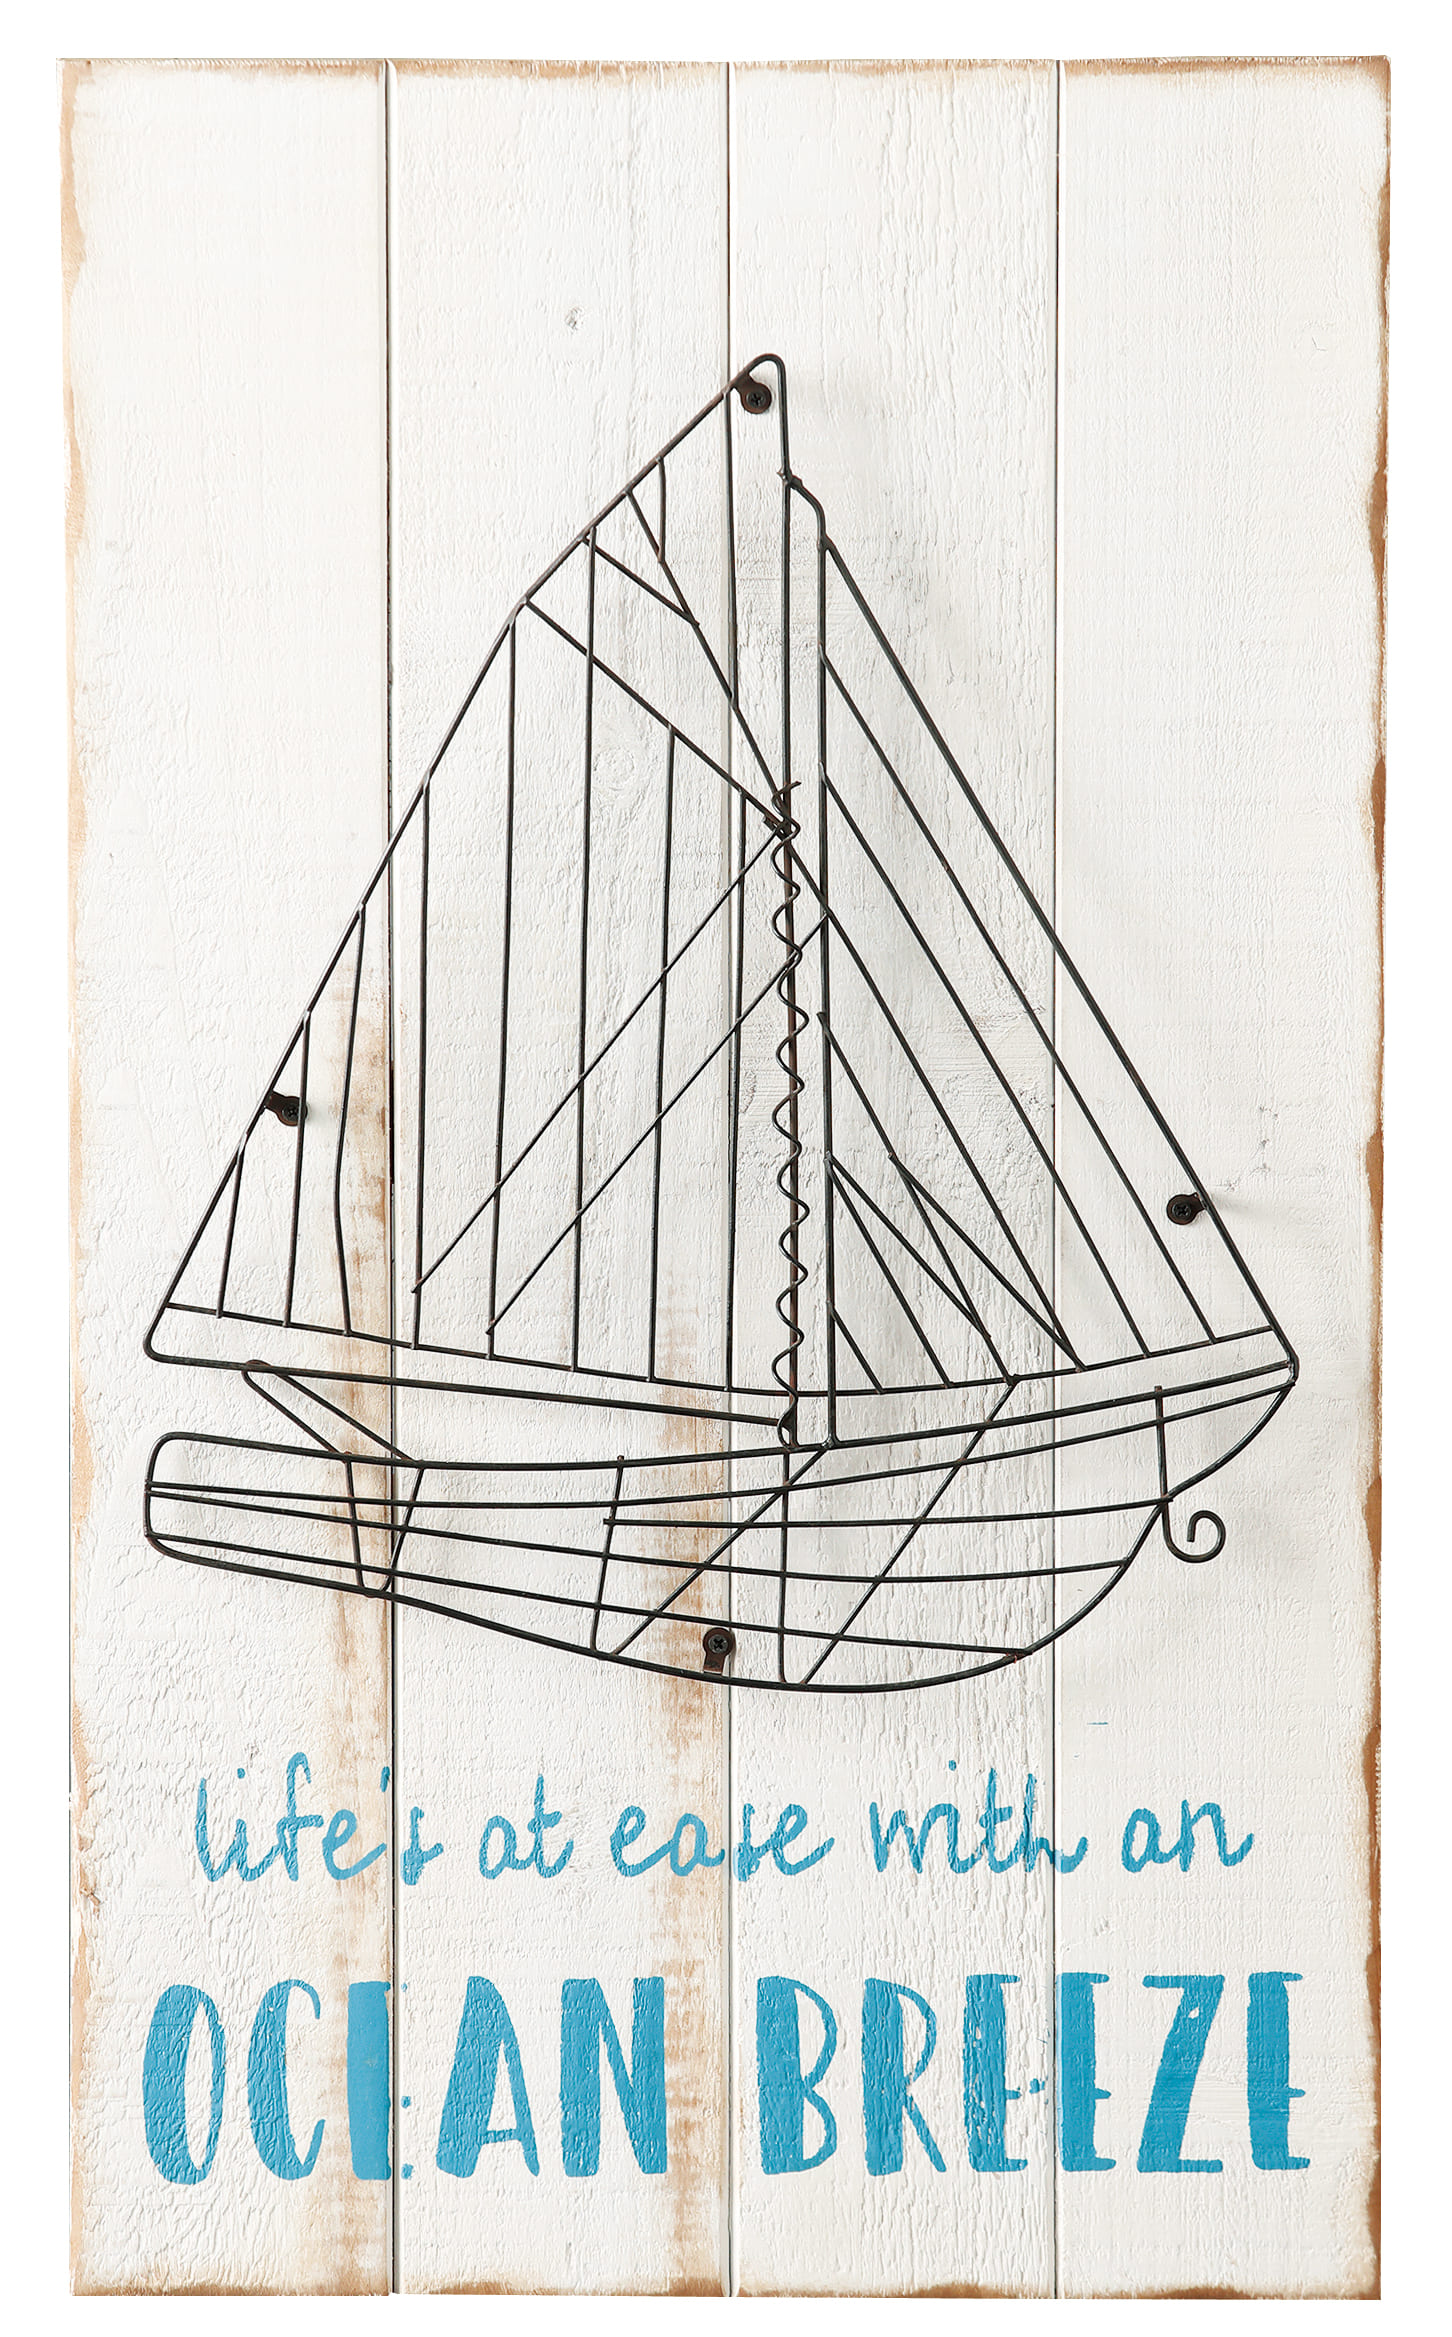 life's at ease with an
OCEAN BREEZE